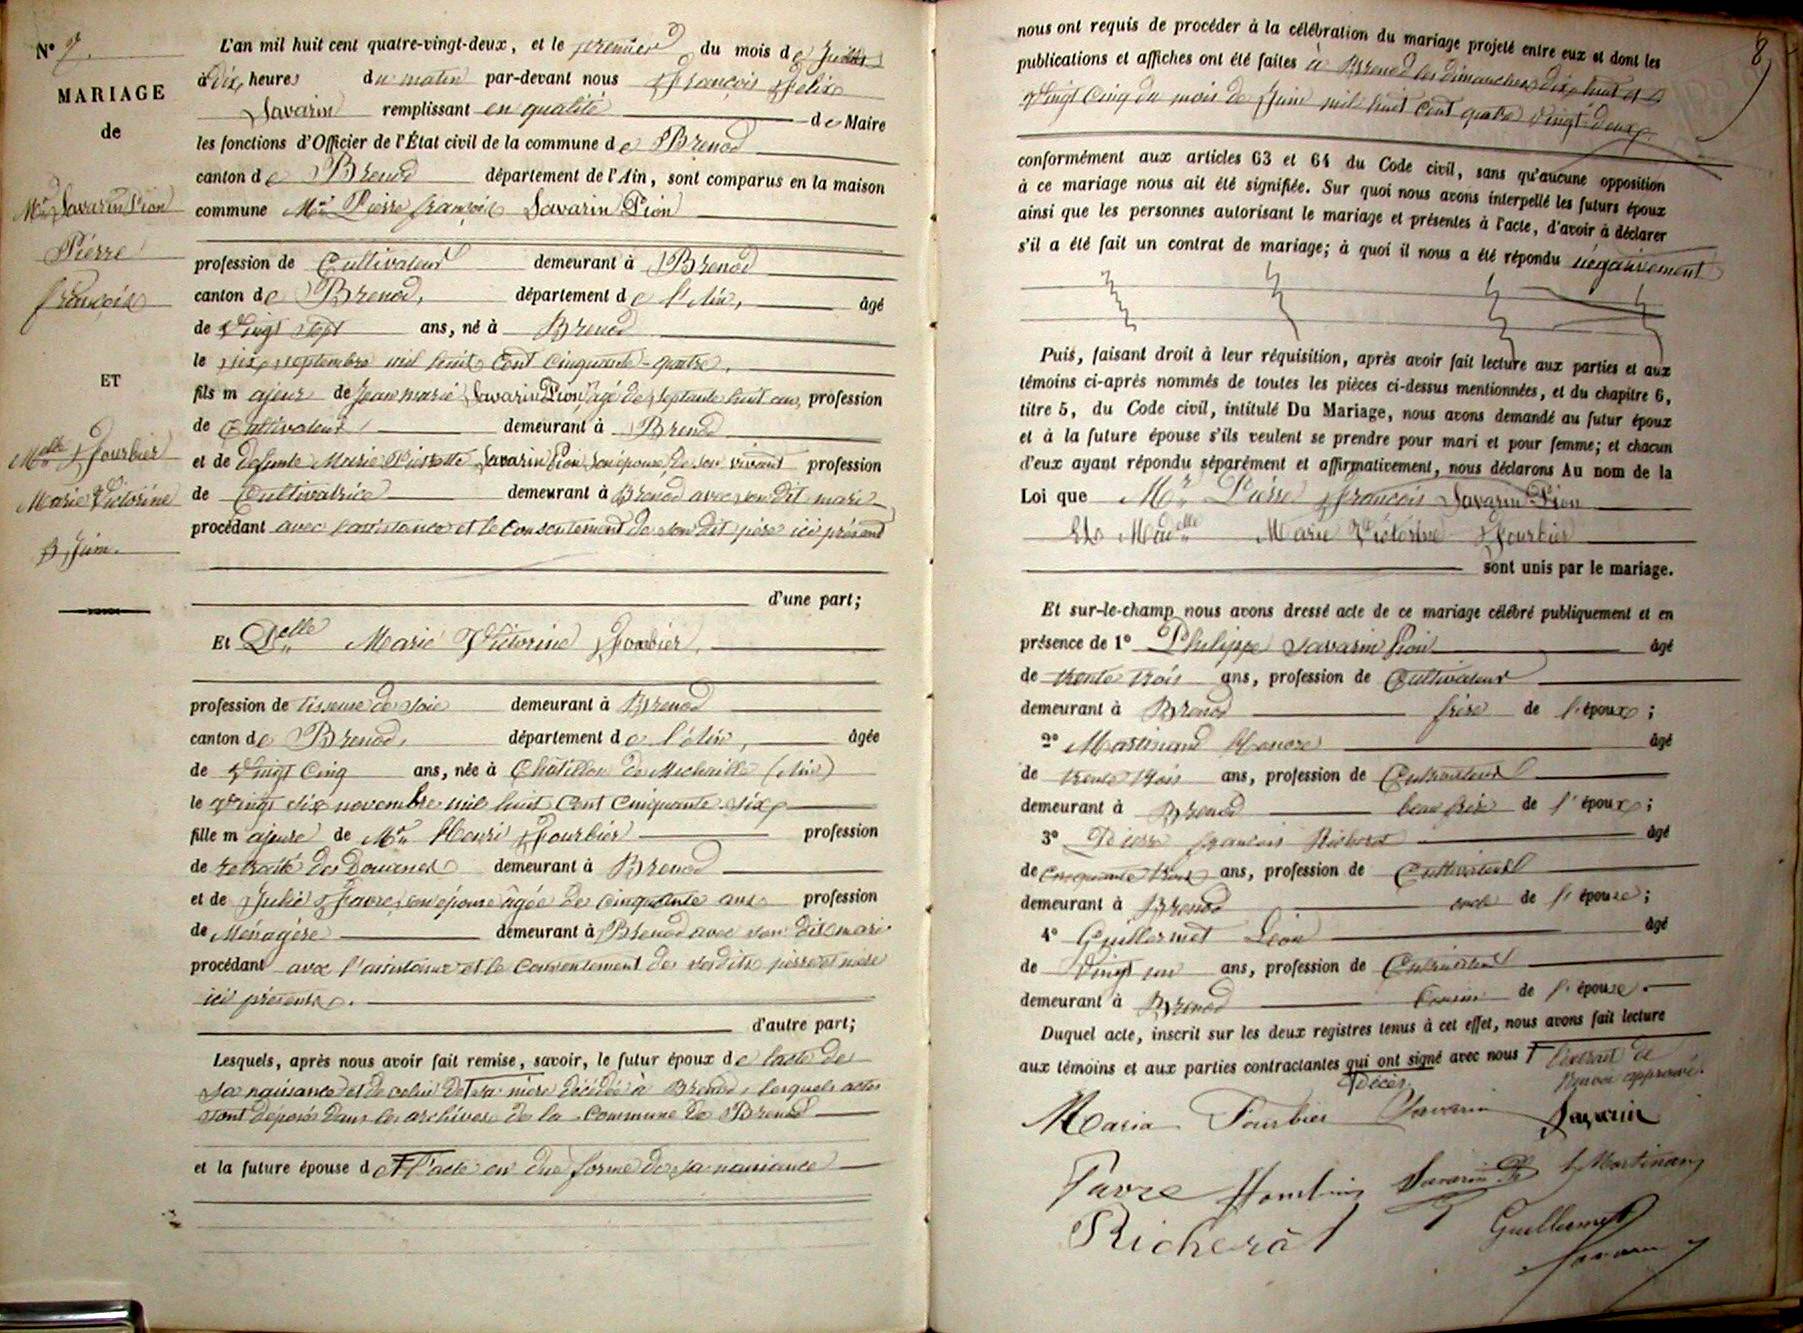 N° 7.
MARIAGE
de
Mr Savarin Pion
Pierre
françois
ET
Melle Fourbier
Marie Victorine
L'an mil huit cent quatre-vingt-deux, et le premier du mois de Juillet
à dix heures du matin par-devant nous François Félix
Savarin remplissant en qualité de Maire
les fonctions d'Officier de l'État civil de la commune de Brenod
canton de Brenod département de l'Ain, sont comparus en la maison
commune Mr Pierre françois Savarin Pion
profession de Cultivateur demeurant à Brenod
canton de Brenod, département de l'Ain, âgé
de vingt sept ans, né à Brenod
le six septembre mil huit cent cinquante-quatre,
fils majeur de Jean marie Savarin Pion, âgé de septante huit ans, profession
de Cultivateur demeurant à Brenod
et de defunte Marie Pierrette Savarin Pion son épouse de son vivant profession
de Cultivatrice demeurant à Brenod avec son dit mari
procédant avec l'assistance et le consentement de son dit père ici présent
d'une part;
Et Delle Marie Victorine Fourbier,
profession de tisseuse de soie demeurant à Brenod
canton de Brenod, département de l'Ain, âgée
de vingt cinq ans, née à Châtillon de Michaille (Ain)
le vingt six novembre mil huit cent cinquante six
fille majeure de Mr Henri Fourbier profession
de retraité des Douanes demeurant à Brenod
et de Julie Favre, son épouse âgée de cinquante ans profession
de Ménagère demeurant à Brenod avec son dit mari
procédant avec l'assistance et le consentement de ses dits père et mère
ici présents.
d'autre part;
Lesquels, après nous avoir fait remise, savoir, le futur époux de l'acte de
sa naissance et de celui de sa mère décédée à Brenod, lesquels actes
sont déposés dans les archives de la commune de Brenod
et la future épouse de l'acte en due forme de sa naissance
8
nous ont requis de procéder à la célébration du mariage projeté entre eux et dont les
publications et affiches ont été faites à Brenod les dimanches dix huit et
vingt cinq du mois de Juin mil huit cent quatre vingt deux.
conformément aux articles 63 et 64 du Code civil, sans qu'aucune opposition
à ce mariage nous ait été signifiée. Sur quoi nous avons interpellé les futurs époux
ainsi que les personnes autorisant le mariage et présentes à l'acte, d'avoir à déclarer
s'il a été fait un contrat de mariage; à quoi il nous a été répondu négativement
Puis, faisant droit à leur réquisition, après avoir fait lecture aux parties et aux
témoins ci-après nommés de toutes les pièces ci-dessus mentionnées, et du chapitre 6,
titre 5, du Code civil, intitulé Du Mariage, nous avons demandé au futur époux
et à la future épouse s'ils veulent se prendre pour mari et pour femme; et chacun
d'eux ayant répondu séparément et affirmativement, nous déclarons Au nom de la
Loi que Mr Pierre François Savarin Pion
Et Madelle Marie Victorine Fourbier
sont unis par le mariage.
Et sur-le-champ nous avons dressé acte de ce mariage célébré publiquement et en
présence de 1° Philippe Savarin Pion âgé
de trente trois ans, profession de Cultivateur
demeurant à Brenod frère de l'époux;
2° Martinand Honoré âgé
de trente trois ans, profession de Cultivateur
demeurant à Brenod beau frère de l'époux;
3° Pierre François Richerot âgé
de cinquante trois ans, profession de Cultivateur
demeurant à Brenod oncle de l'épouse;
4° Guillermet Léon âgé
de vingt un ans, profession de Cultivateur
demeurant à Brenod Cousin de l'épouse.
Duquel acte, inscrit sur les deux registres tenus à cet effet, nous avons fait lecture
aux témoins et aux parties contractantes qui ont signé avec nous l'extrait de
décès renvoi approuvé.
Maria Fourbier Savarin Savarin
Favre Fourbier Savarin Ph h Martinand
Richerôt Guillermet
Savarin